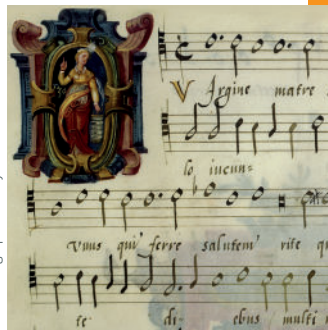 Virgine matre
lo iucun=
vnus qui ferre salutem rite
te di= ebus multi